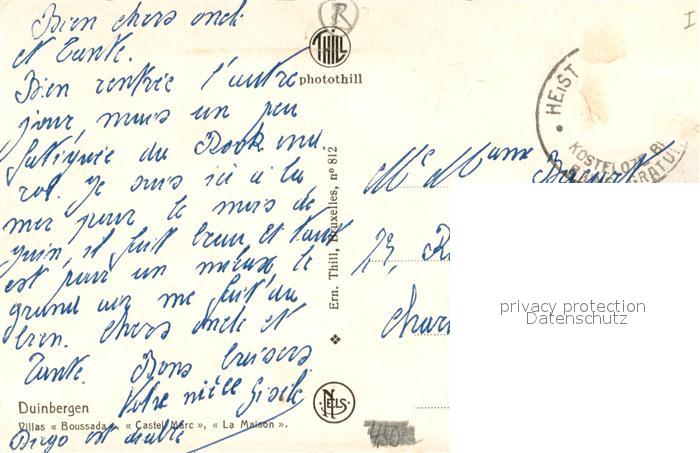 Bien chers oncle
et Tante.
Bien rentrée l'autre
jour, mais un peu
fatiguée du Rock and
rol. Je suis ici à la
mer pour le mois de
juin, il fait beau et tout
est pour un mieux, le
grand air me fait du
bien. Chers oncle et
Tante. Bons baisers
Votre nièce Gisèle
Diego est
R
THILL
photothill
Ern. Thill, Bruxelles, nº 812
NELS
Duinbergen
Villas « Boussada », « Castel Marc », « La Maison ».
HEIST
KOSTELOZE
Mr Mme
73, R
Char
450
I
privacy protection
Datenschutz